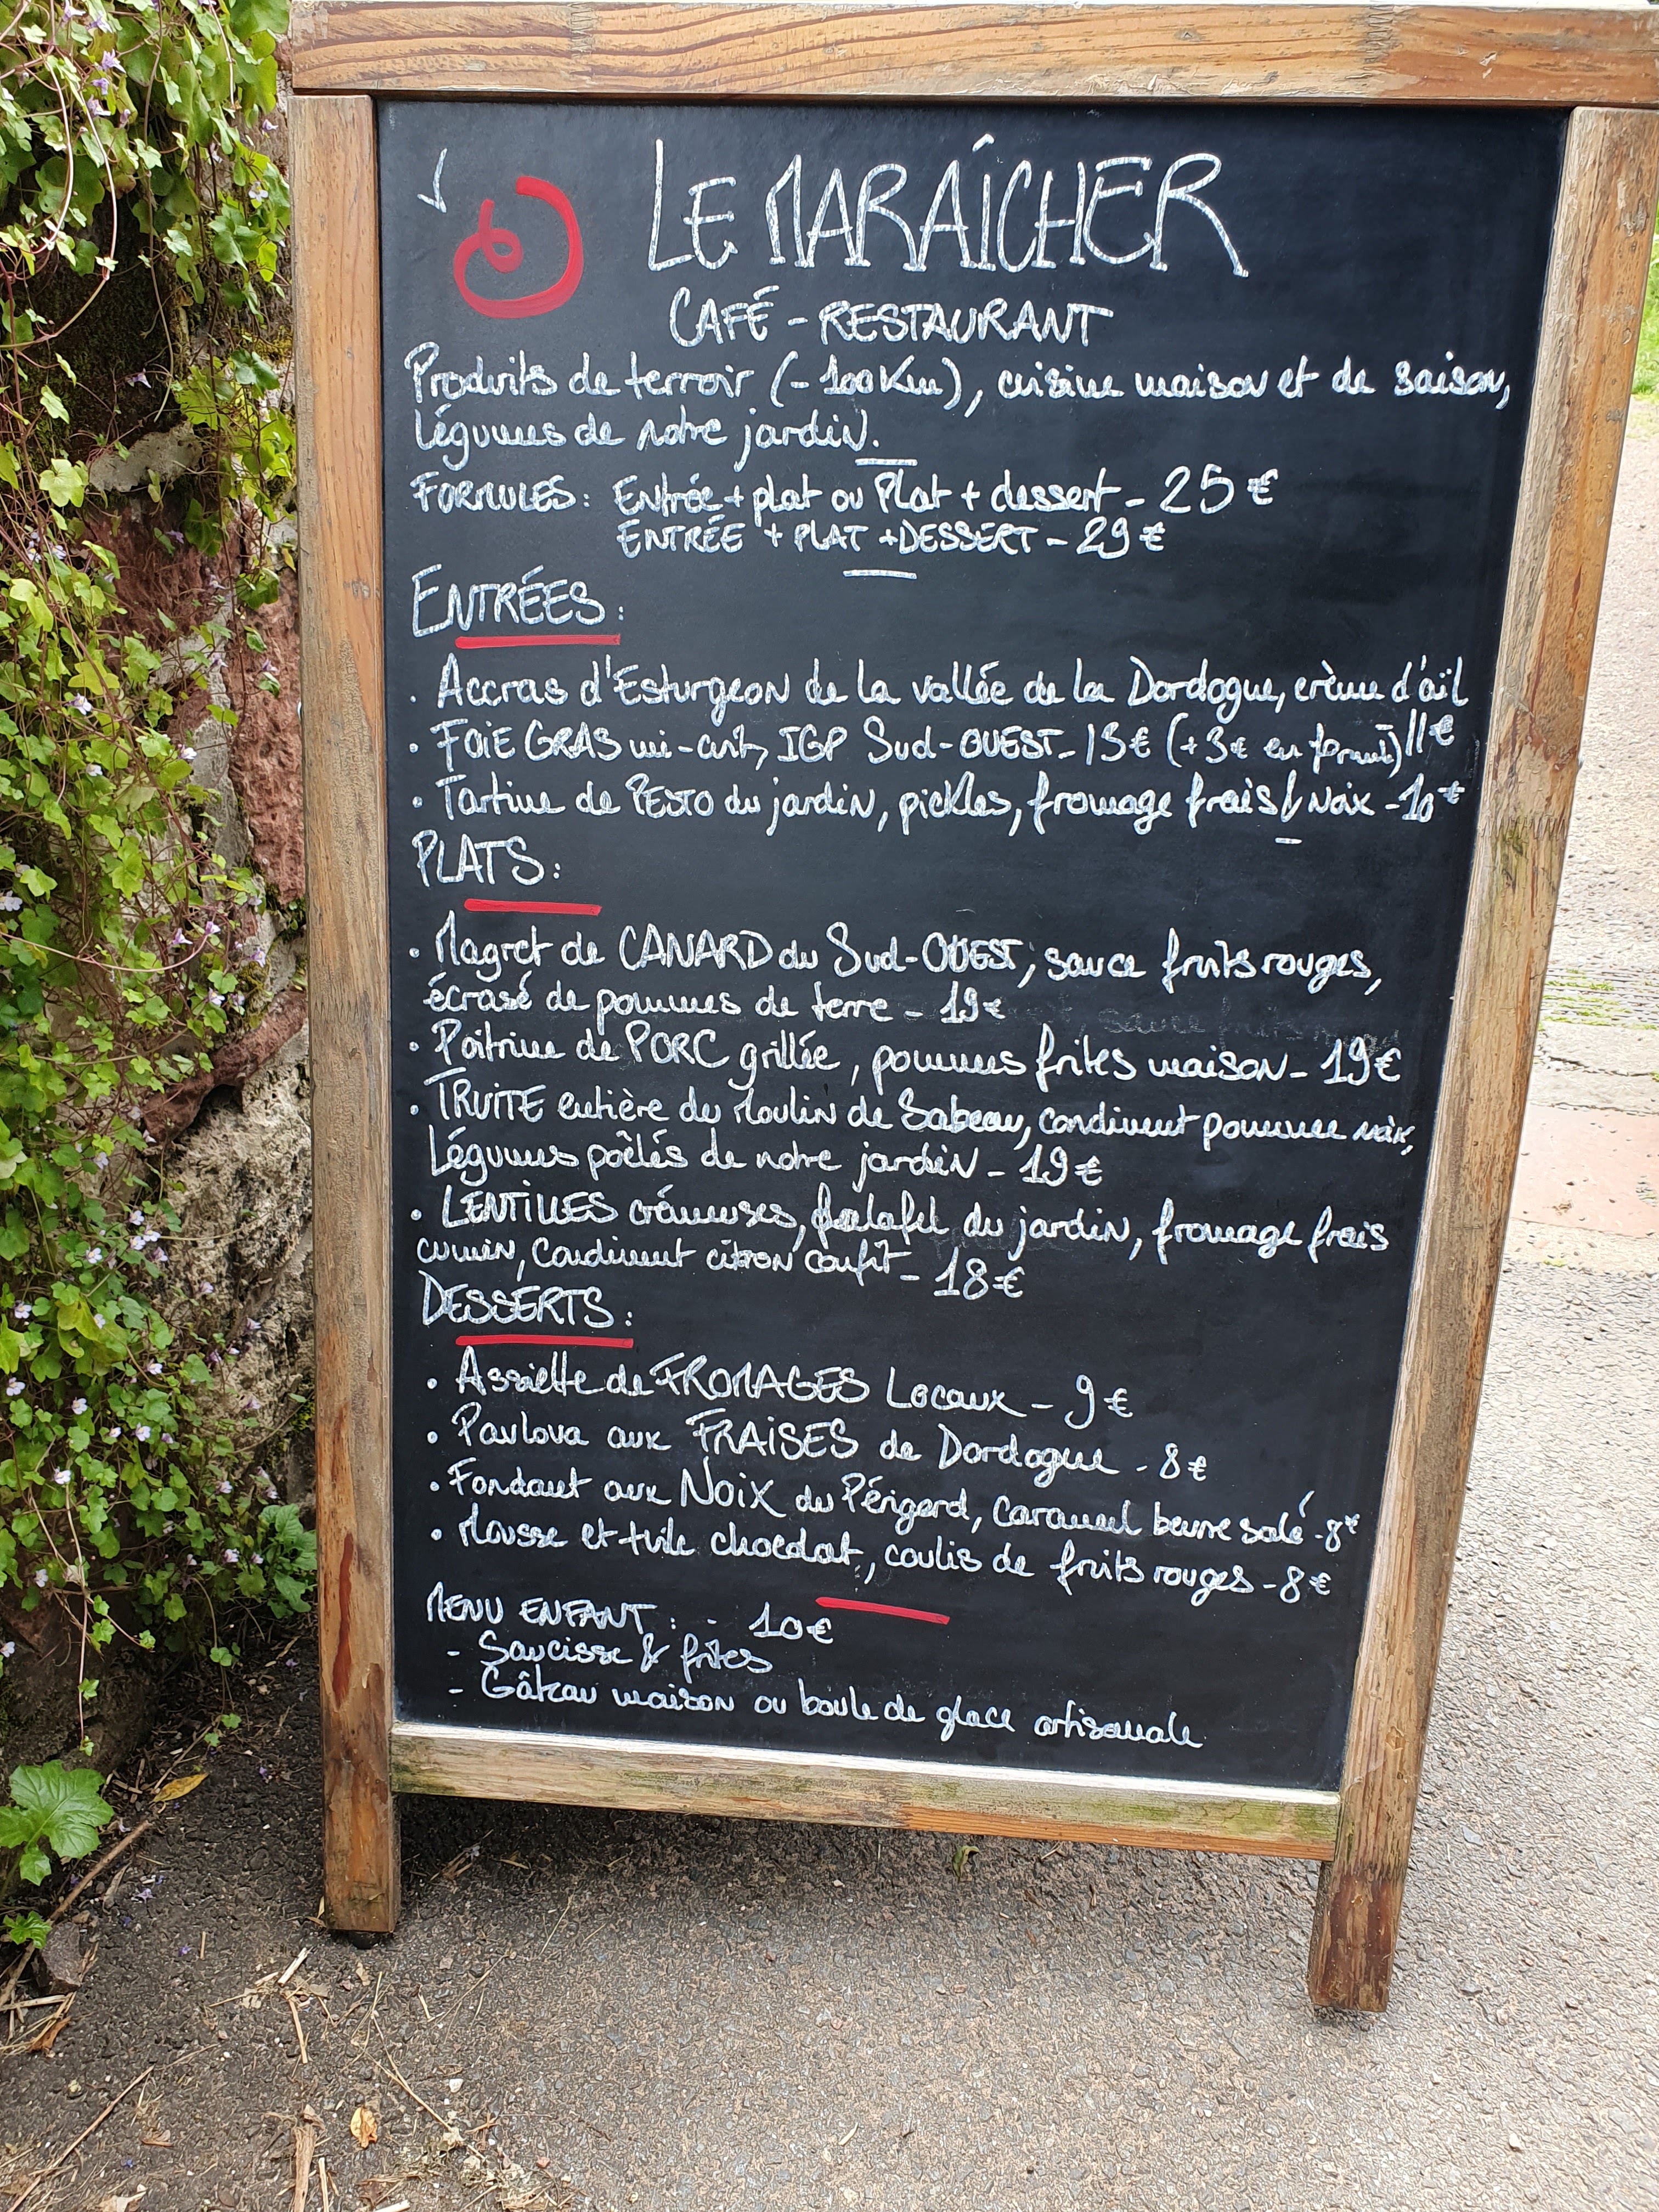 LE MARAÎCHER
CAFÉ - RESTAURANT
Produits de terroir (- 100 Km), cuisine maison et de saison,
Légumes de notre jardin.
FORMULES : Entrée + plat ou Plat + dessert - 25 €
ENTRÉE + PLAT + DESSERT - 29 €
ENTRÉES :
. Accras d'Esturgeon de la vallée de la Dordogne, crème d'aïl
11 €
. FOIE GRAS mi-cuit, IGP Sud-OUEST - 13 € (+3€ en formule)
. Tartine de PESTO du jardin, pickles, fromage frais & Noix - 10 €
PLATS :
. Magret de CANARD du Sud-OUEST, sauce fruits rouges,
écrasé de pommes de terre - 19 €
. Poitrine de PORC grillée, pommes frites maison - 19 €
. TRUITE entière du Moulin de Sabeau, condiment pomme noix,
Légumes poêlés de notre jardin - 19 €
. LENTILLES crémeuses, falafel du jardin, fromage frais
cumin, Condiment citron confit - 18 €
DESSERTS :
. Assiette de FROMAGES Locaux - 9 €
. Pavlova aux FRAISES de Dordogne - 8 €
. Fondant aux NOIX du Périgord, Caramel beurre salé - 8 €
. Mousse et tuile chocolat, coulis de fruits rouges - 8 €
MENU ENFANT : - 10 €
- Saucisse & frites
- Gâteau maison ou boule de glace artisanale